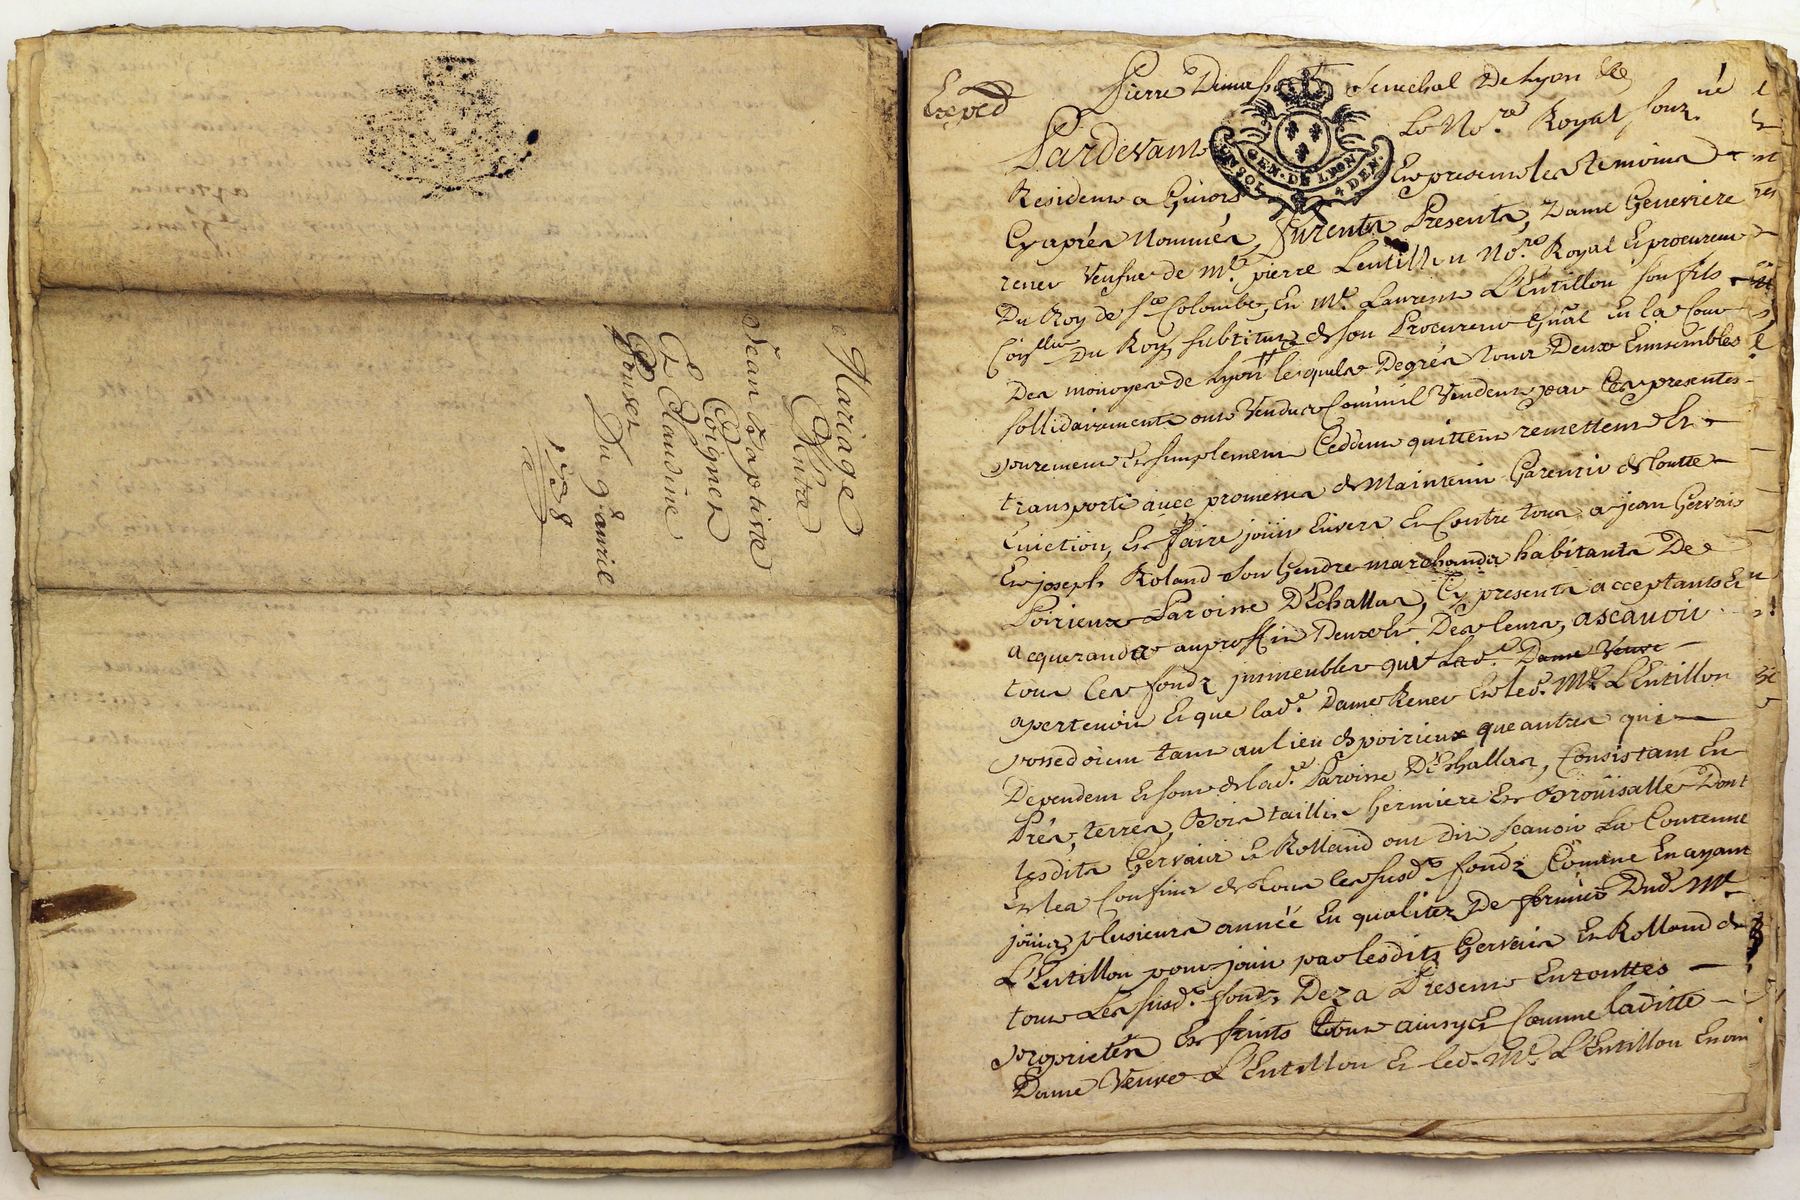 Mariage
Entre
Jean Baptiste
Coignet
Et Claudine
Ponset
Du 9e avril
1708
Exped
Pierre Dumas Senechal De Lyon
Pardevant Le No.re Royal souz.né
GEN. DE LYON
4 DEN.
Residant a Givors Et presents les temoins
Cy apres Nommés, furents Presents, Dame Genevieve
renev Veufve de Mr. pierre Lentillon No.re Royal Et procureur
Du Roy de Ste Colombe, Et Mr. Laurent L'Entillon son fils
Du Roy, substitut de son Procureur Gnal En la Cour
Des monoyes de Lyon lesquels Degrés tous Deux Ensembles
sollidairements ont Vendu Comme Vendent par Ces presentes
purement Et simplement Ceddent quittent remettent Et
transporte avec promesses de Maintenir Garentir de toutte
Eviction, Et faire joüir Envers Et Contre tous a jean Gervais
Et joseph Roland son Gendre marchands habitants De
Poirieux Paroisse D'Echallas, Cy presents acceptants Et
acquerands au proffit Deux Et Des leurs, ascavoir
tous les fondz jmmeubles qui Lad.e Dame Veuve
apertenoir Et que lad.e Dame Renev Et led. Mr. L'Entillon
possedoient tant au lieu de poirieux que autres qui
Dependent Et sont de lad.e Paroisse D'Echallas, Consistant En
Prés, terres, Bois taillis hermiere Et Broüisalle Dont
lesdits Gervais Et Rolland ont dit scavoir La Contenue
Et les Confins de tous les susd.s fondz Comme En ayant
joüis plusieurs année En qualitez De fermiers Dud. Mr.
L'Entillon pour joüir par lesdits Gervais Et Rolland de
tous Les susd.s fondz Dez a Present En touttes
proprietés Et fruits tout ainsy Et Comme laditte
Dame Veuve L'Entillon Et led. Mr. L'Entillon En ont